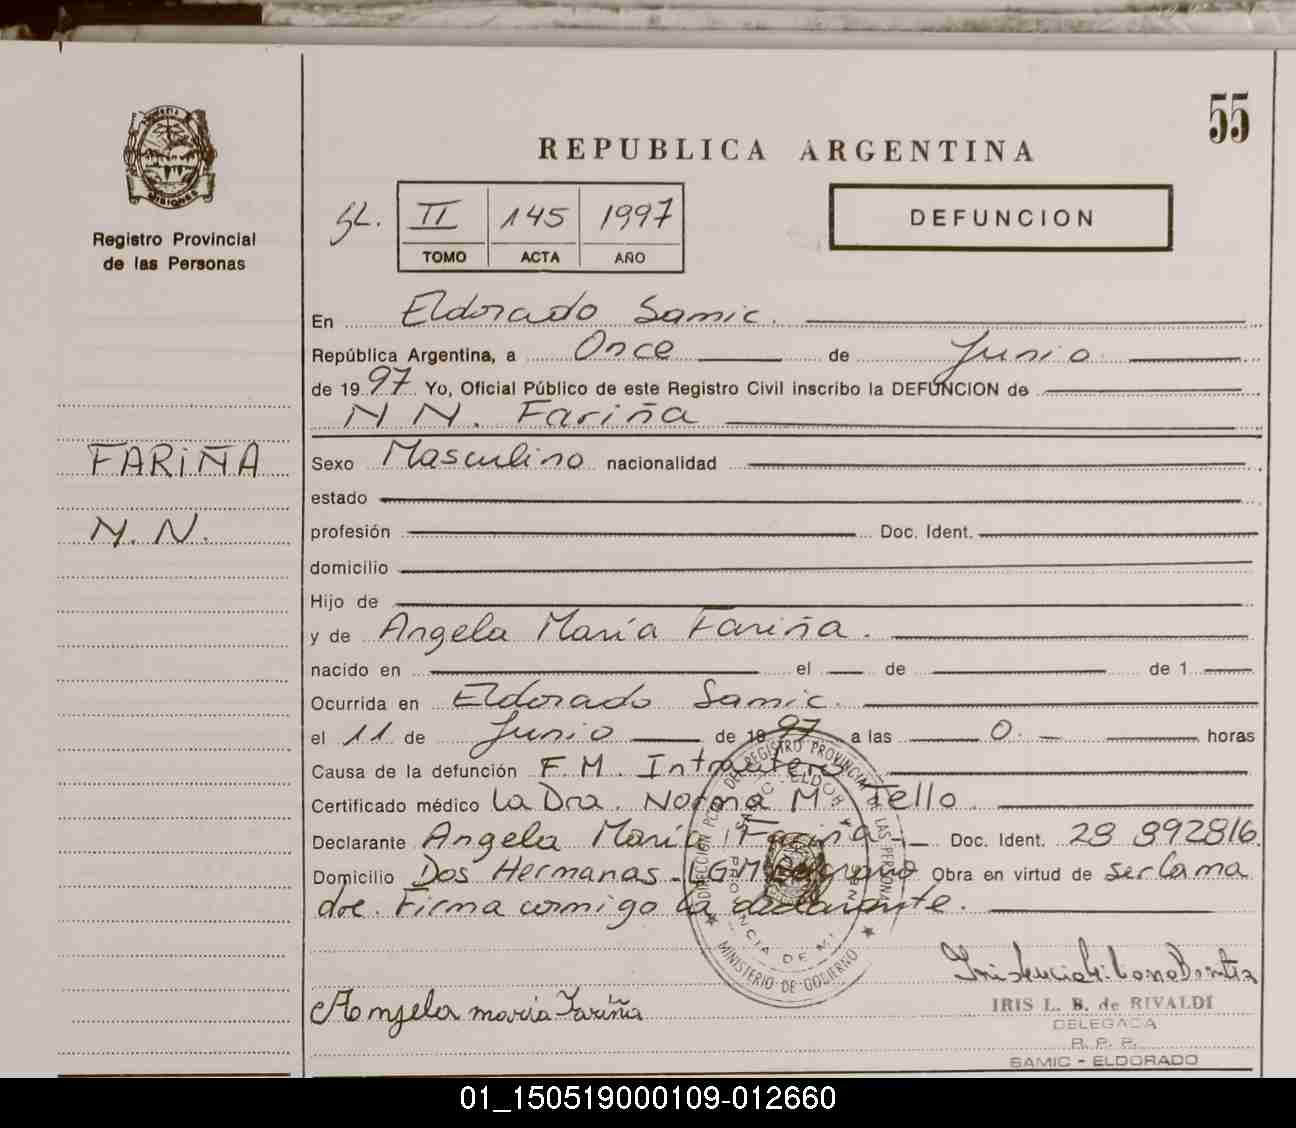 55
REPUBLICA ARGENTINA
MISIONES
Registro Provincial
de las Personas
II 145 1997
TOMO ACTA AÑO
DEFUNCION
En Eldorado Samic.
República Argentina, a Once de Junio
de 1997 Yo, Oficial Público de este Registro Civil inscribo la DEFUNCION de
N N. Fariña
FARIÑA
N. N.
Sexo Masculino nacionalidad
estado
profesión Doc. Ident.
domicilio
Hijo de
y de Angela María Fariña.
nacido en el de de 1
Ocurrida en Eldorado Samic.
el 11 de Junio de 1997 a las 0. horas
Causa de la defunción F.M. Intrautero
Certificado médico La Dra. Norma M. Tello.
Declarante Angela María Fariña Doc. Ident. 23 892816.
Domicilio Dos Hermanas - Obra en virtud de ser la ma
dre. Firma conmigo la declarante.
REGISTRO PROVINCIAL DE LAS PERSONAS
MINISTERIO DE GOBIERNO
Angela maria Fariña
IRIS L. B. de RIVALDI
DELEGADA
R. P. P.
SAMIC - ELDORADO
01_150519000109-012660